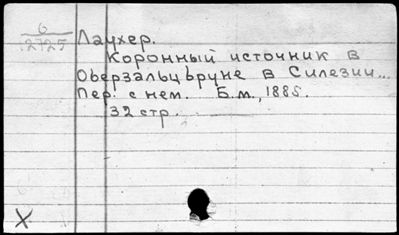 6
2725
Лаухер.
Коронный источник в
Оберзальцbруне в Силезии...
Пер. с нем. Б.м., 1885.
32 стр.
X